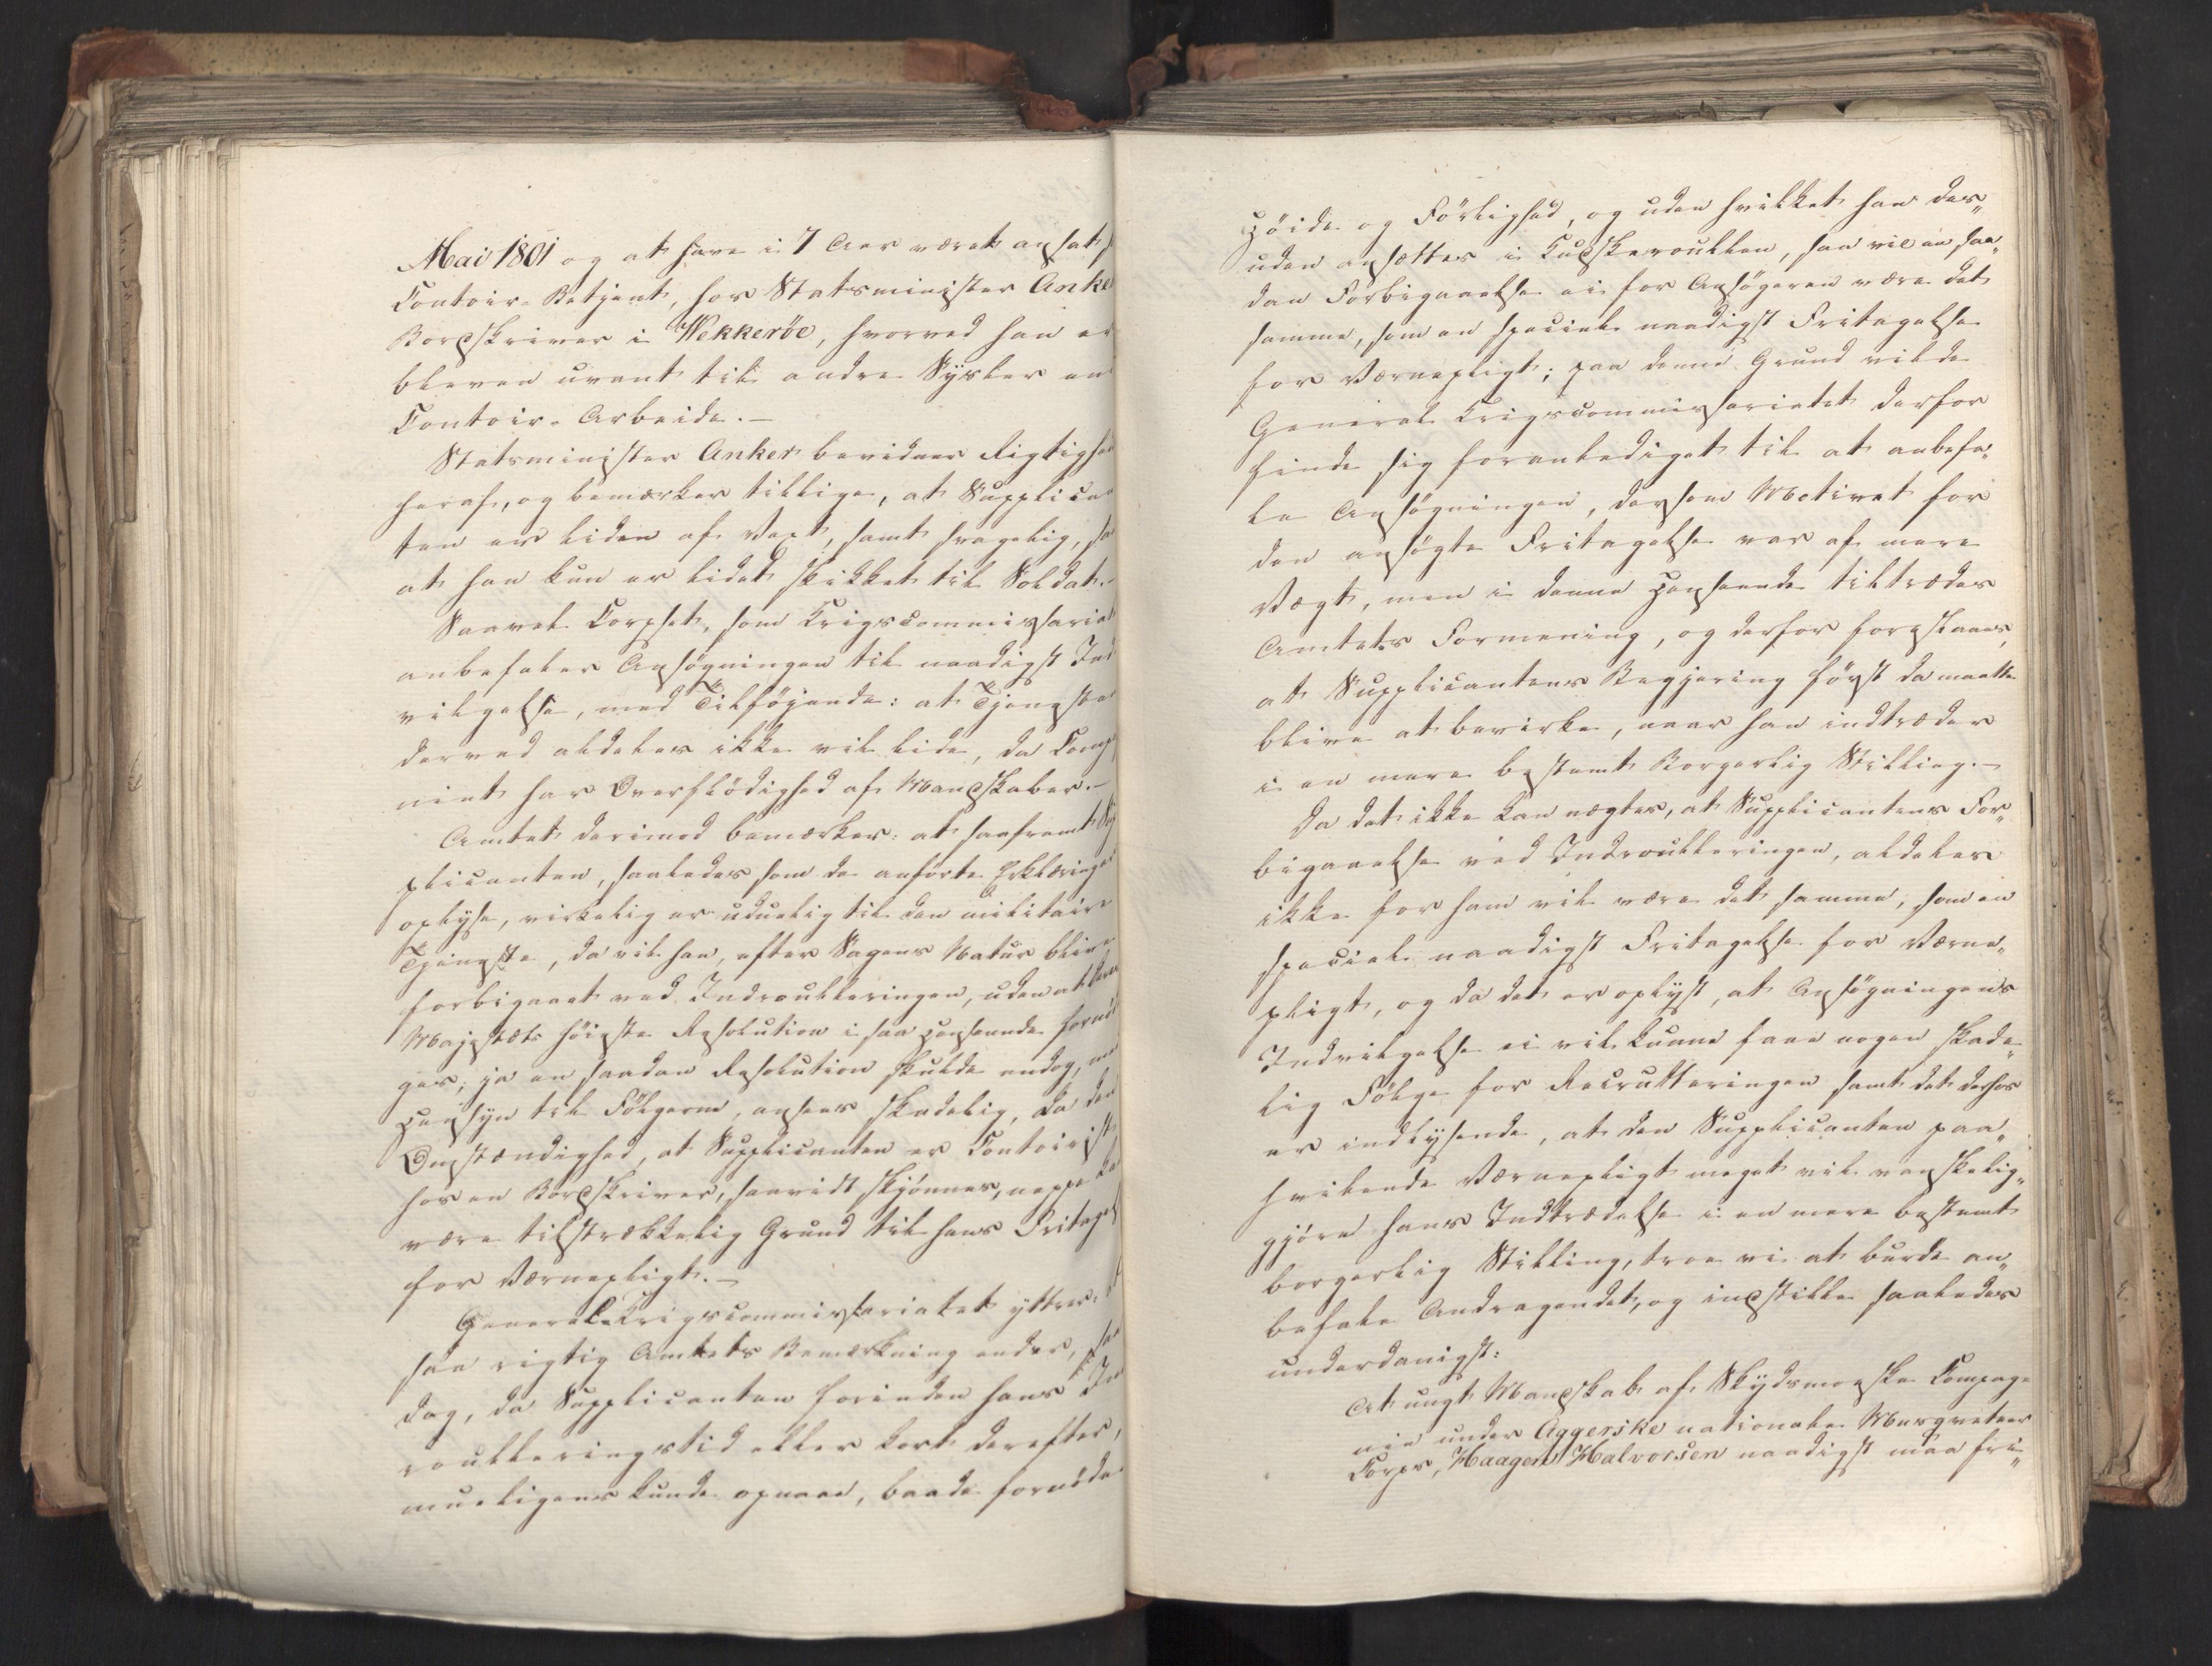 Mai 1801 og at have i 7 Aar været ansat s
Contoir-Betjent, hos Statsminister Anke
Bordskriver i Wekkeröe, hvorved han er
bleven uvant til andre Sysler en
Contoir-Arbeide.—
Statsminister Anker bevidner Rigtighe
heraf, og bemærker tillige, at Supplican
ten er liden af Vext, samt svagelig, sa
at han kun er lidet skikket til Soldat.—
Saavel Corpset, som Krigscommissariat
anbefaler Ansøgningen til naadigst Ind
vilgelse, med Tilföjende: at Tjenesten
derved aldeles ikke vil lide, da Comp
niet har Overflödighed af Mandskaber.—
Amtet derimod bemærker: at saafremt Sup
plicanten, saaledes som de anførte Erklæringer
oplyse, virkelig er uduelig til den militaire
Tjeneste, da vil han, efter Sagens Natur blive
forbigaaet ved Indroulleringen, uden at deres
Majestæts höieste Resolution i saa Henseende fornöd
ges; ja en saadan Resolution skulde endog, med
Hensyn til Fölgerne, ansees skadelig, da den
Omstændighed, at Supplicanten er Contoirist
hos en Bordskriver, saavidt skjønnes, neppe ka
være tilstrækkelig Grund til hans Fritagel
for Værnepligt.—
General-Krigscommissariatet yttrer: at
saa rigtig Amtets Bemærkning endes, saa
dog, da Supplicanten forinden hans In
roulleringstid eller kort derefter,
mueligens kunde opnaae, baade fornöde
Höide og Förlighed, og uden hvilket han des„
uden ansættes i Kudskeroullen, saa vil en saa„
dan Forbigaaelse ei for Ansøgeren være det
samme, som en speciel naadigst Fritagelse
for Værnepligt; paa denne Grund vilde
General Krigscommissariatet derfor
finde sig foranlediget til at anbefa„
le Ansøgningen, dersom Motivet for
den ansøgte Fritagelse var af mere
Vægt, men i denne Henseende tiltrædes
Amtets Formening, og derfor foreslaaes,
at Supplicantens Begjering først da maatte
blive at bevirke, naar han indtræder
i en mere bestemt Borgerlig Stilling.—
Da det ikke kan nægtes, at Supplicantens For„
bigaaelse ved Indroulleringen, aldeles
ikke for ham vil være det samme, som en
speciel naadigst Fritagelse for Værne„
pligt, og da det er oplyst, at Ansøgningens
Indvilgelse ei vil kunne faae nogen skade„
lig Fölge for Recrutteringen samt det derhos
er indlysende, at den Supplicanten paa„
hvilende Værnepligt meget vil vanskelig„
gjöre hans Indtrædelse i en mere bestemt
borgerlig Stilling, troe vi at burde an„
befale Andragendet, og indstille saaledes
underdanigst:
At ungt Mandskab af Skydsmoeske Compag„
nie under Aggerske nationale Musqveteer
Corps, Haagen Halvorsen naadigst maa fri„